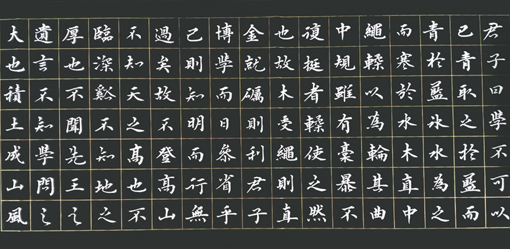 君子曰學不可以
已青取之於藍而
青於藍冰水為之
而寒於水木直中
繩輮以為輪其曲
中規雖有槀暴不
復挺者輮使之然
也故木受繩則直
金就礪則利君子
博學而日參省乎
己則知明而行無
過矣故不登高山
不知天之高也不
臨深谿不知地之
厚也不聞先王之
遺言不知學問之
大也積土成山風